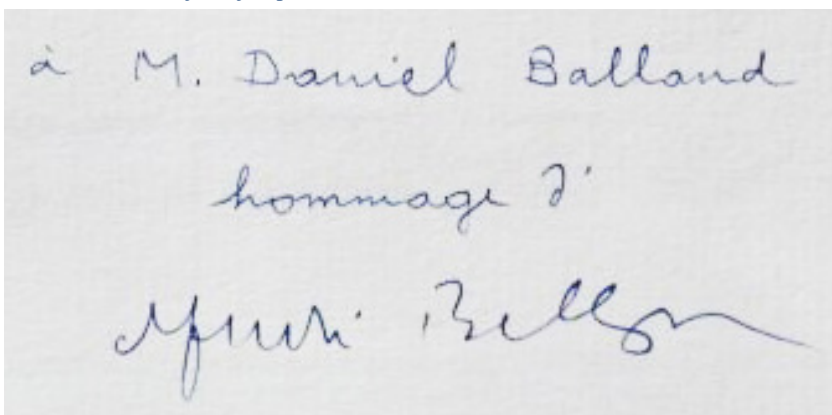 à M. Daniel Balland
hommage d'
Henri